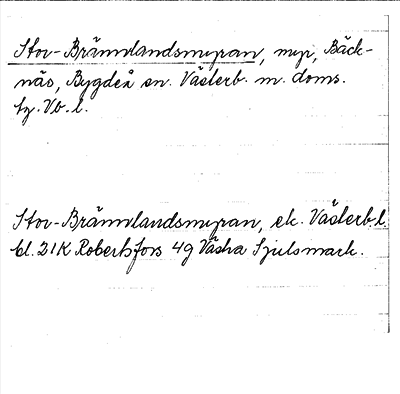 Stor-Brännlandsmyran, myr, Bäck-
näs, Bygdeå sn. Västerb. m. doms.
tg. Vb. l.
Stor-Brännlandsmyran, ek. Västerb. l.
bl. 21K Robertsfors 4g Västra Sjulsmark.